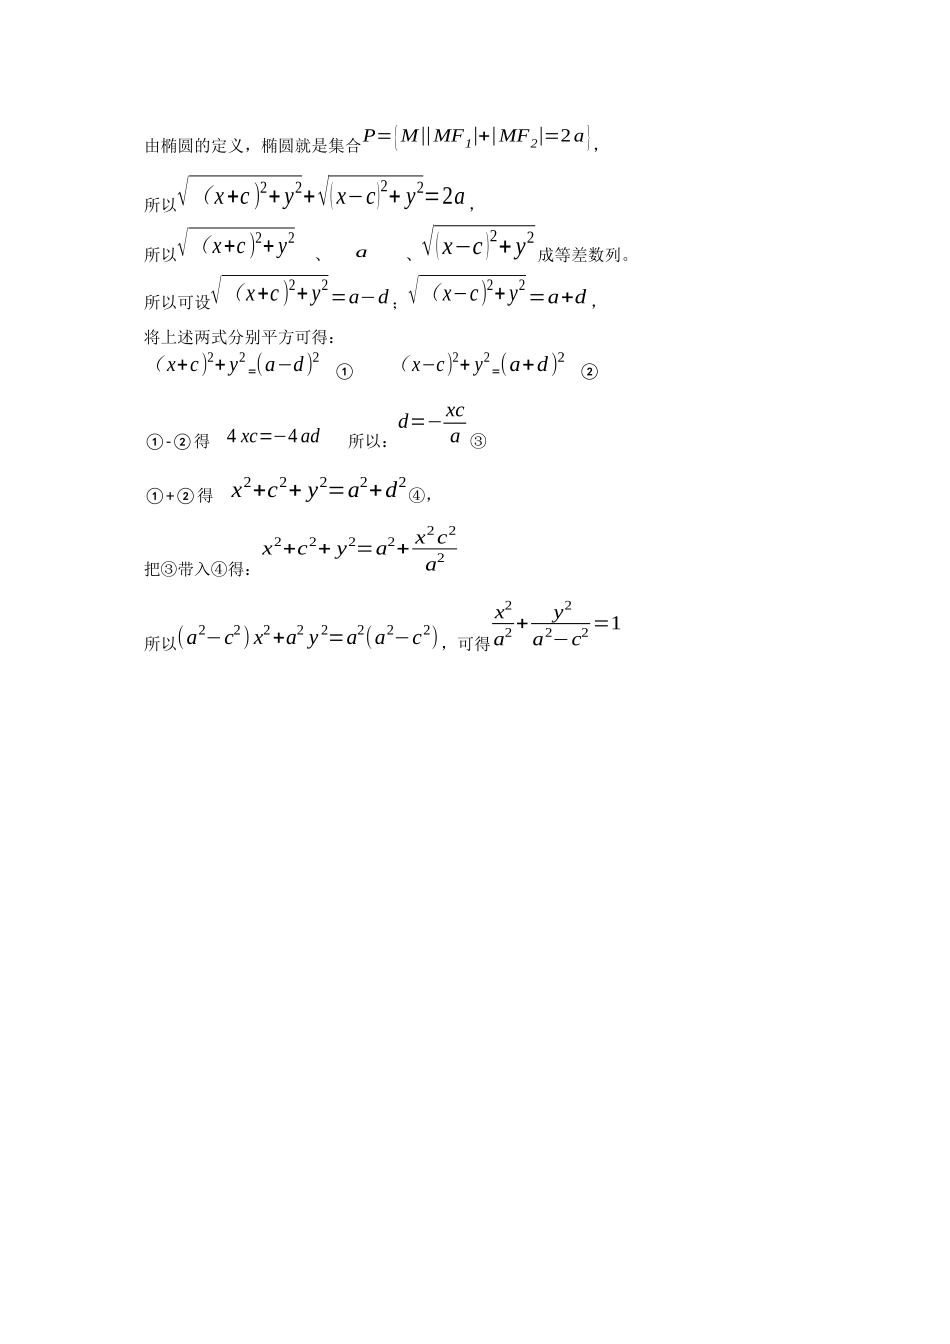 由椭圆的定义，椭圆就是集合P={M||MF₁|+|MF₂|=2a}，
所以√(（x+c)²+y²)+√((x−c)²+y²)=2a，
所以√(（x+c)²+y²) 、 a 、√((x−c)²+y²)成等差数列。
所以可设√(（x+c)²+y²)=a−d；√(（x−c)²+y²)=a+d，
将上述两式分别平方可得：
（x+c)²+y²=(a−d)² ① （x−c)²+y²=(a+d)² ②
①-②得 4xc=−4ad 所以：d=−xc/a ③
①+②得 x²+c²+y²=a²+d²④，
把③带入④得：x²+c²+y²=a²+x²c²/a²
所以(a²−c²)x²+a²y²=a²(a²−c²)，可得x²/a²+y²/(a²−c²)=1